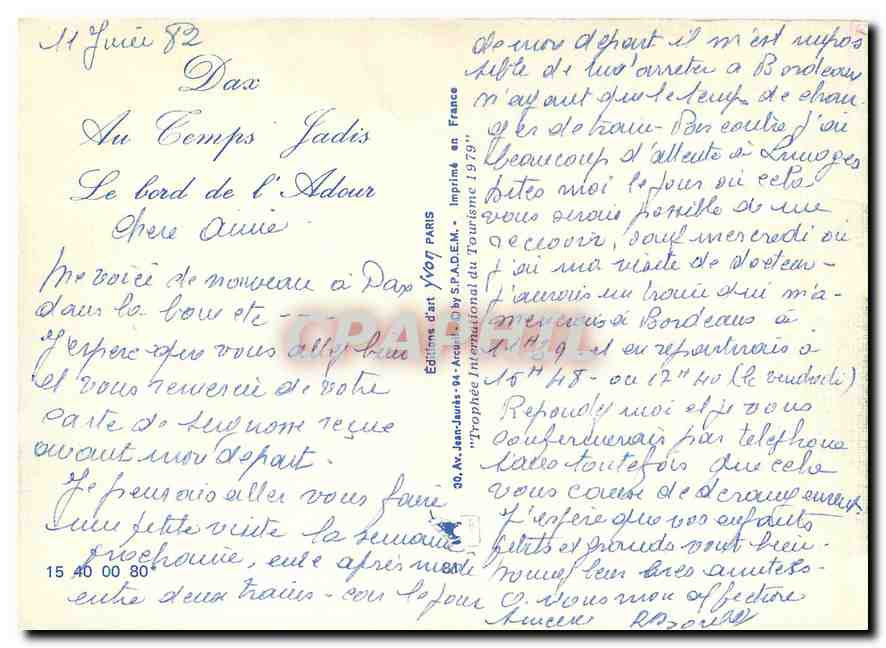 11 Juin 82
Dax
Au Temps Jadis
Le bord de l'Adour
Chère Aimée
Me voici de nouveau à Dax
dans la boue etc - - - -
J'espère que vous allez bien
et vous remercie de votre
carte de Seignosse reçue
avant mon départ.
Je pensais aller vous faire
une petite visite la semaine
prochaine, une après midi
entre deux trains - car le jour
15 40 00 80
Editions d'art YVON PARIS
30, Av. Jean-Jaurès - 94 - Arcueil - © by S.P.A.D.E.M. - Imprimé en France
"Trophée International du Tourisme 1979"
CPARHIL
de mon départ il m'est impos
sible de m'arreter à Bordeaux
n'ayant que le temps de chan
ger de train - Par contre j'ai
beaucoup d'attente à Limoges
Dites moi le jour où cela
vous serait possible de me
recevoir, sauf mercredi où
j'ai ma visite de docteur -
J'aurais un train qui m'a-
menerait à Bordeaux à
11H39 et en repartirais à
15H48 - ou 17H40 (le vendredi)
Repondez moi et je vous
confirmerais par telephone
sans toutefois que cela
vous cause de derangement
J'espère que vos enfants
petits et grands vont bien -
pour leur mes amities -
A vous mon affection
sincère